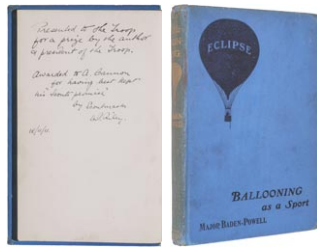 Presented to the Troop
for a prize by the author
as president of the Troop.
Awarded to
for having best kept
his "Scouts promise"
by
ECLIPSE
BALLOONING
as a Sport
MAJOR BADEN-POWELL